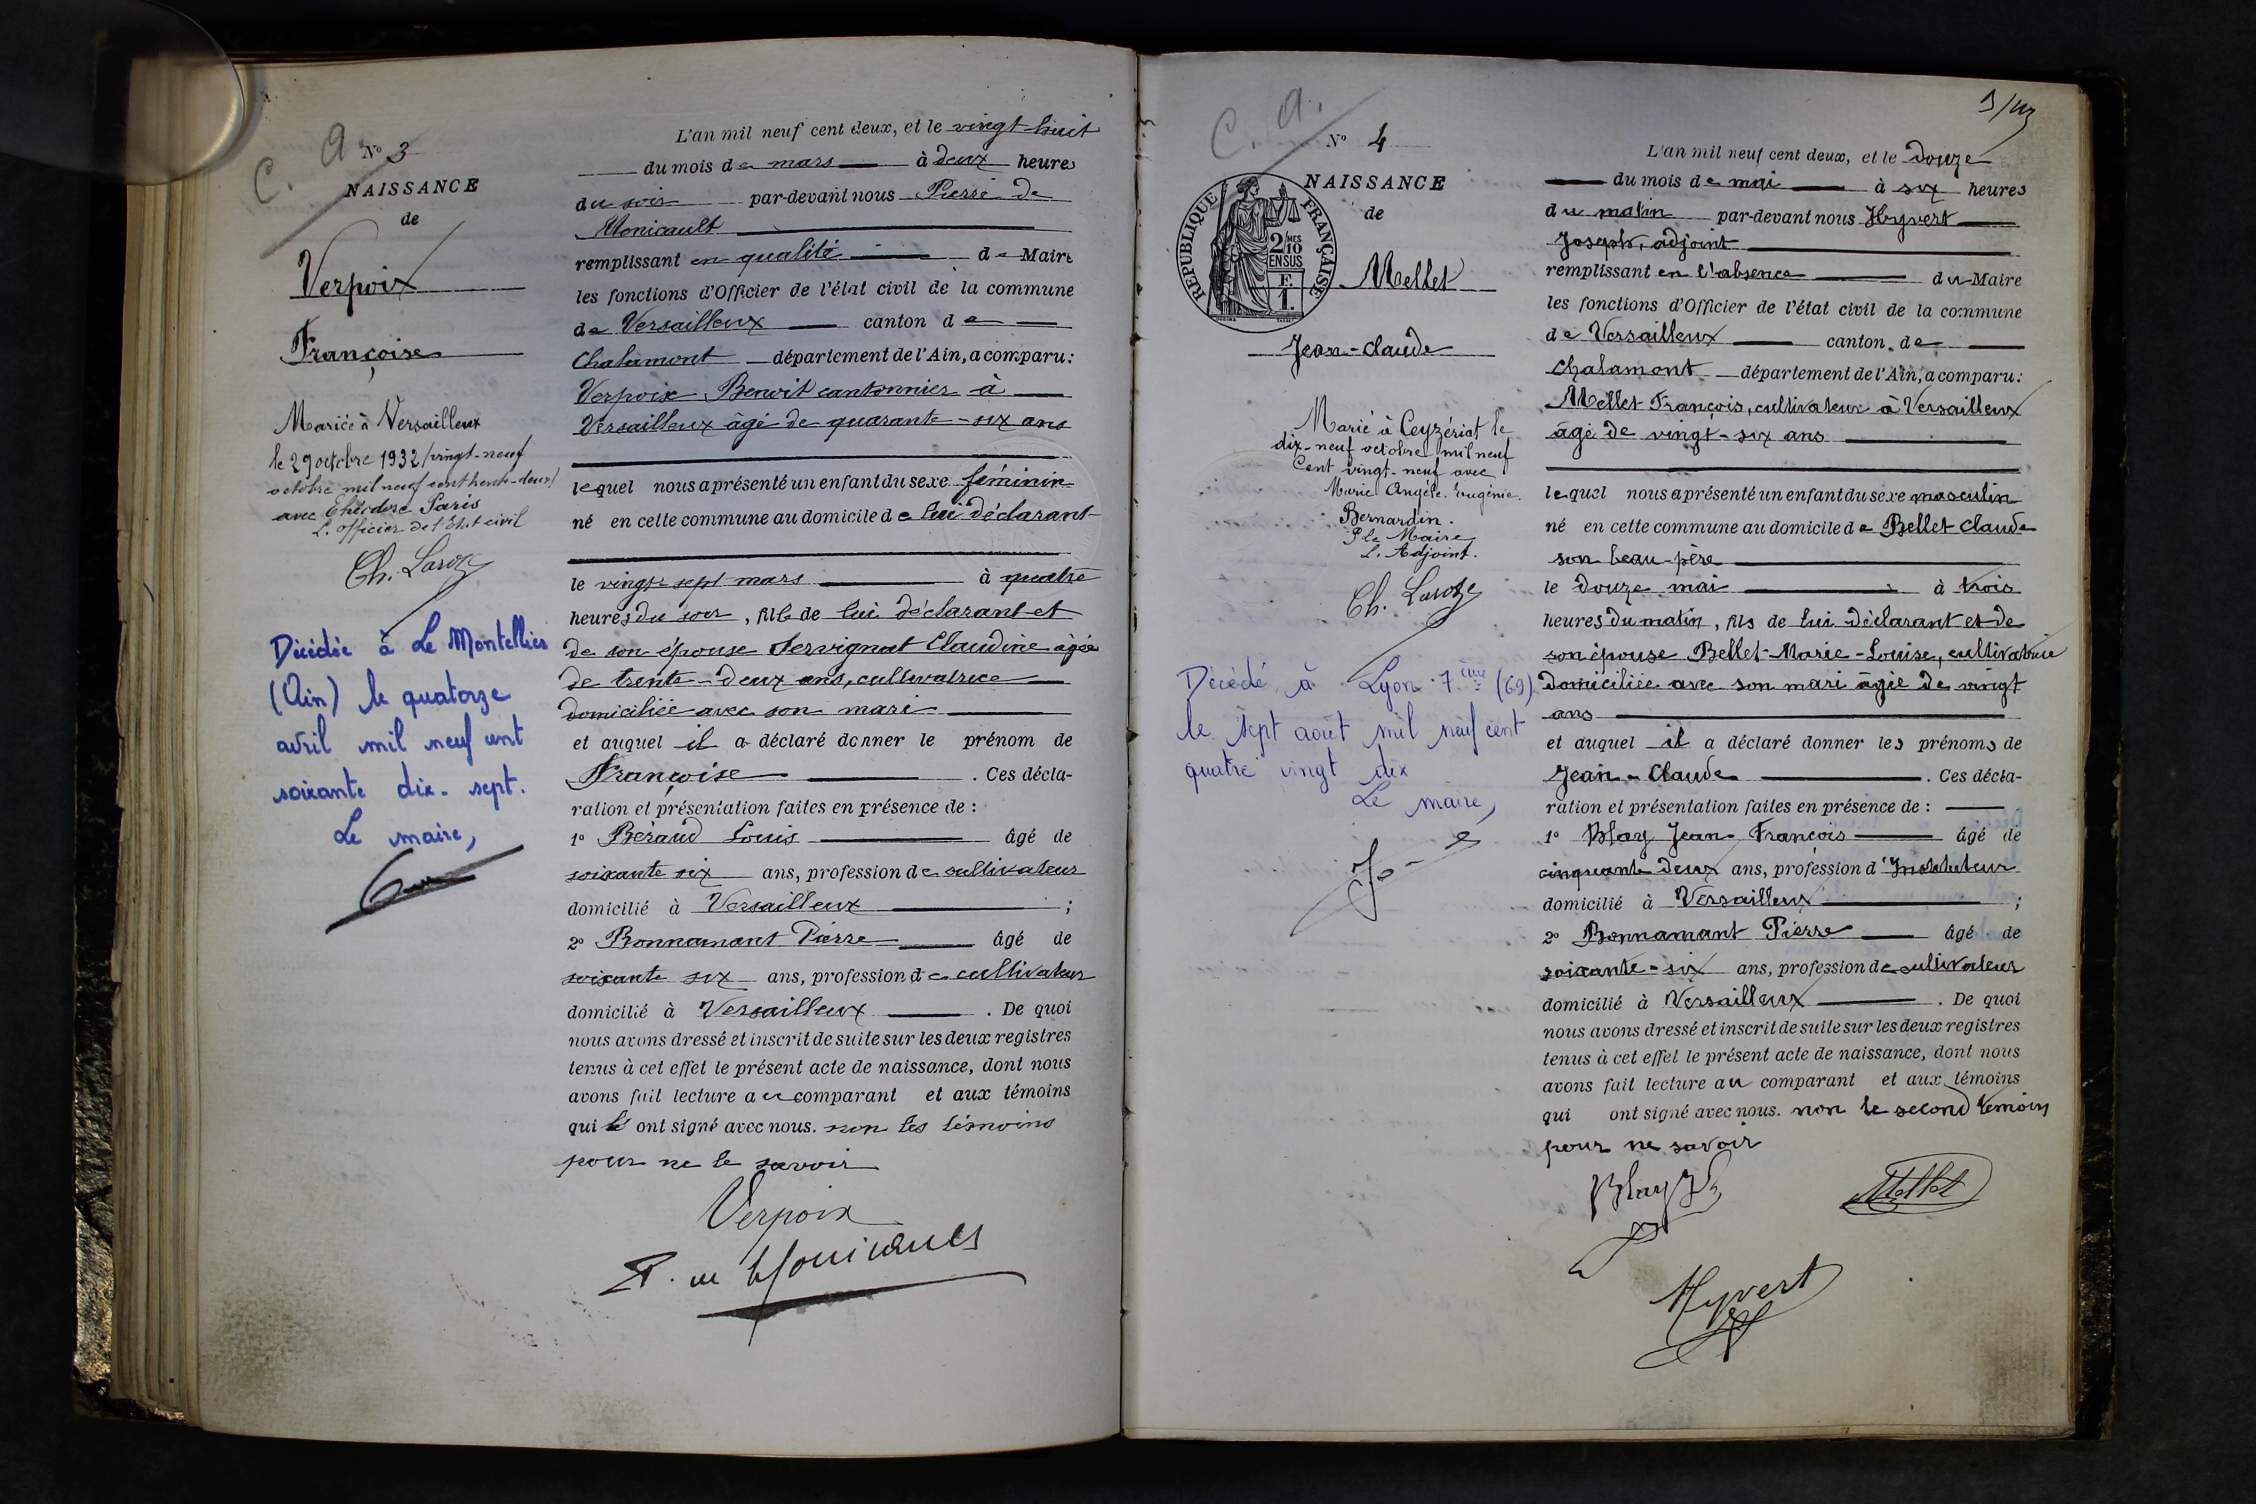 C. A.
N° 3
NAISSANCE
de
Verpoix
Françoise
Mariée à Versailleux
le 29 octobre 1932 / vingt-neuf
octobre mil neuf cent trente-deux /
avec Théodore Paris
L'officier de l'état civil
Ch. Laroze
Décédée à Le Montellier
(Ain) le quatorze
avril mil neuf cent
soixante dix-sept.
Le maire,
L'an mil neuf cent deux, et le vingt huit
du mois de mars à deux heures
du soir par-devant nous Pierre de
Monicault
remplissant en qualité de Maire
les fonctions d'Officier de l'état civil de la commune
de Versailleux canton de
Chalamont département de l'Ain, a comparu :
Verpoix Benoit cantonnier à
Versailleux âgé de quarante-six ans
lequel nous a présenté un enfant du sexe féminin
né en cette commune au domicile de lui déclarant
le vingt sept mars à quatre
heures du soir, fille de lui déclarant et
de son épouse Servignat Claudine âgée
de trente-deux ans, cultivatrice
domiciliée avec son mari
et auquel il a déclaré donner le prénom de
Françoise . Ces décla-
ration et présentation faites en présence de :
1° Béraud Louis âgé de
soixante six ans, profession de cultivateur
domicilié à Versailleux ;
2° Bonnamant Pierre âgé de
soixante six ans, profession de cultivateur
domicilié à Versailleux . De quoi
nous avons dressé et inscrit de suite sur les deux registres
tenus à cet effet le présent acte de naissance, dont nous
avons fait lecture au comparant et aux témoins
qui ont signé avec nous. non les témoins
pour ne le savoir
Verpoix
P. de Monicault
C. A.
N° 4
NAISSANCE
de
RÉPUBLIQUE FRANÇAISE
2/10 MES
EN SUS
E
1.
Mellet
Jean-Claude
Marié à Ceyzériat le
dix-neuf octobre mil neuf
Cent vingt-neuf avec
Marie Angèle Eugénie
Bernardin.
P le Maire
L'Adjoint.
Ch. Laroze
Décédé à Lyon 7ème (69)
le sept août mil neuf cent
quatre vingt dix
Le maire,
L'an mil neuf cent deux, et le douze
du mois de mai à six heures
du matin par-devant nous Hyvert
Joseph, adjoint
remplissant en l'absence du Maire
les fonctions d'Officier de l'état civil de la commune
de Versailleux canton de
Chalamont département de l'Ain, a comparu :
Mellet François, cultivateur à Versailleux
âgé de vingt-six ans
lequel nous a présenté un enfant du sexe masculin
né en cette commune au domicile de Bellet Claude
son beau-père
le douze mai à trois
heures du matin, fils de lui déclarant et de
son épouse Bellet Marie-Louise, cultivatrice
domiciliée avec son mari âgée de vingt
ans
et auquel il a déclaré donner les prénoms de
Jean-Claude . Ces décla-
ration et présentation faites en présence de :
1° Blay Jean François âgé de
cinquante deux ans, profession d'Instituteur
domicilié à Versailleux ;
2° Bonnamant Pierre âgé de
soixante-six ans, profession de cultivateur
domicilié à Versailleux . De quoi
nous avons dressé et inscrit de suite sur les deux registres
tenus à cet effet le présent acte de naissance, dont nous
avons fait lecture au comparant et aux témoins
qui ont signé avec nous. non le second témoin
pour ne savoir
Blay
Mellet
Hyvert